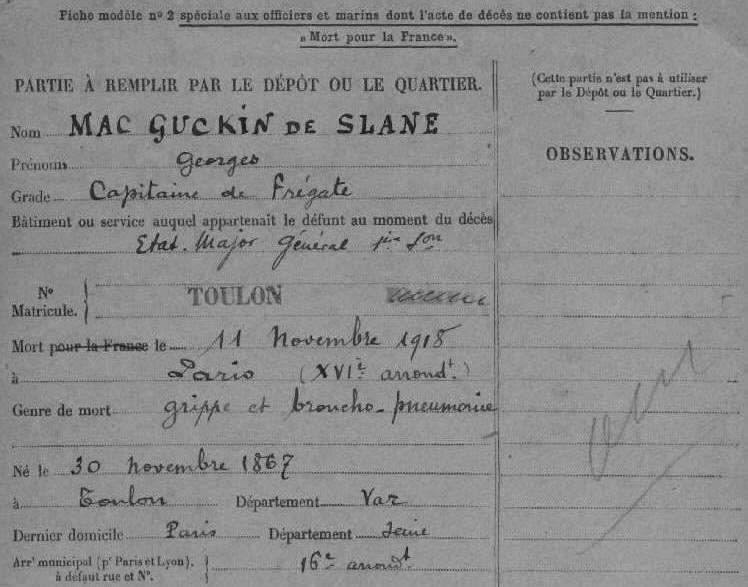 Fiche modèle nº 2 spéciale aux officiers et marins dont l'acte de décès ne contient pas la mention :
« Mort pour la France ».
PARTIE À REMPLIR PAR LE DÉPÔT OU LE QUARTIER.
(Cette partie n'est pas à utiliser
par le Dépôt ou le Quartier.)
OBSERVATIONS.
Nom MAC GUCKIN DE SLANE
Prénoms Georges
Grade Capitaine de Frégate
Bâtiment ou service auquel appartenait le défunt au moment du décès
Etat-Major Général
Nº
Matricule. TOULON
Mort pour la France le 11 Novembre 1918
à Paris (XVIè arrondt.)
Genre de mort grippe et broncho-pneumonie
Né le 30 novembre 1867
à Toulon Département Var
Dernier domicile Paris Département Seine
Arrt municipal (pr Paris et Lyon), 16e arrondt
à défaut rue et Nº.